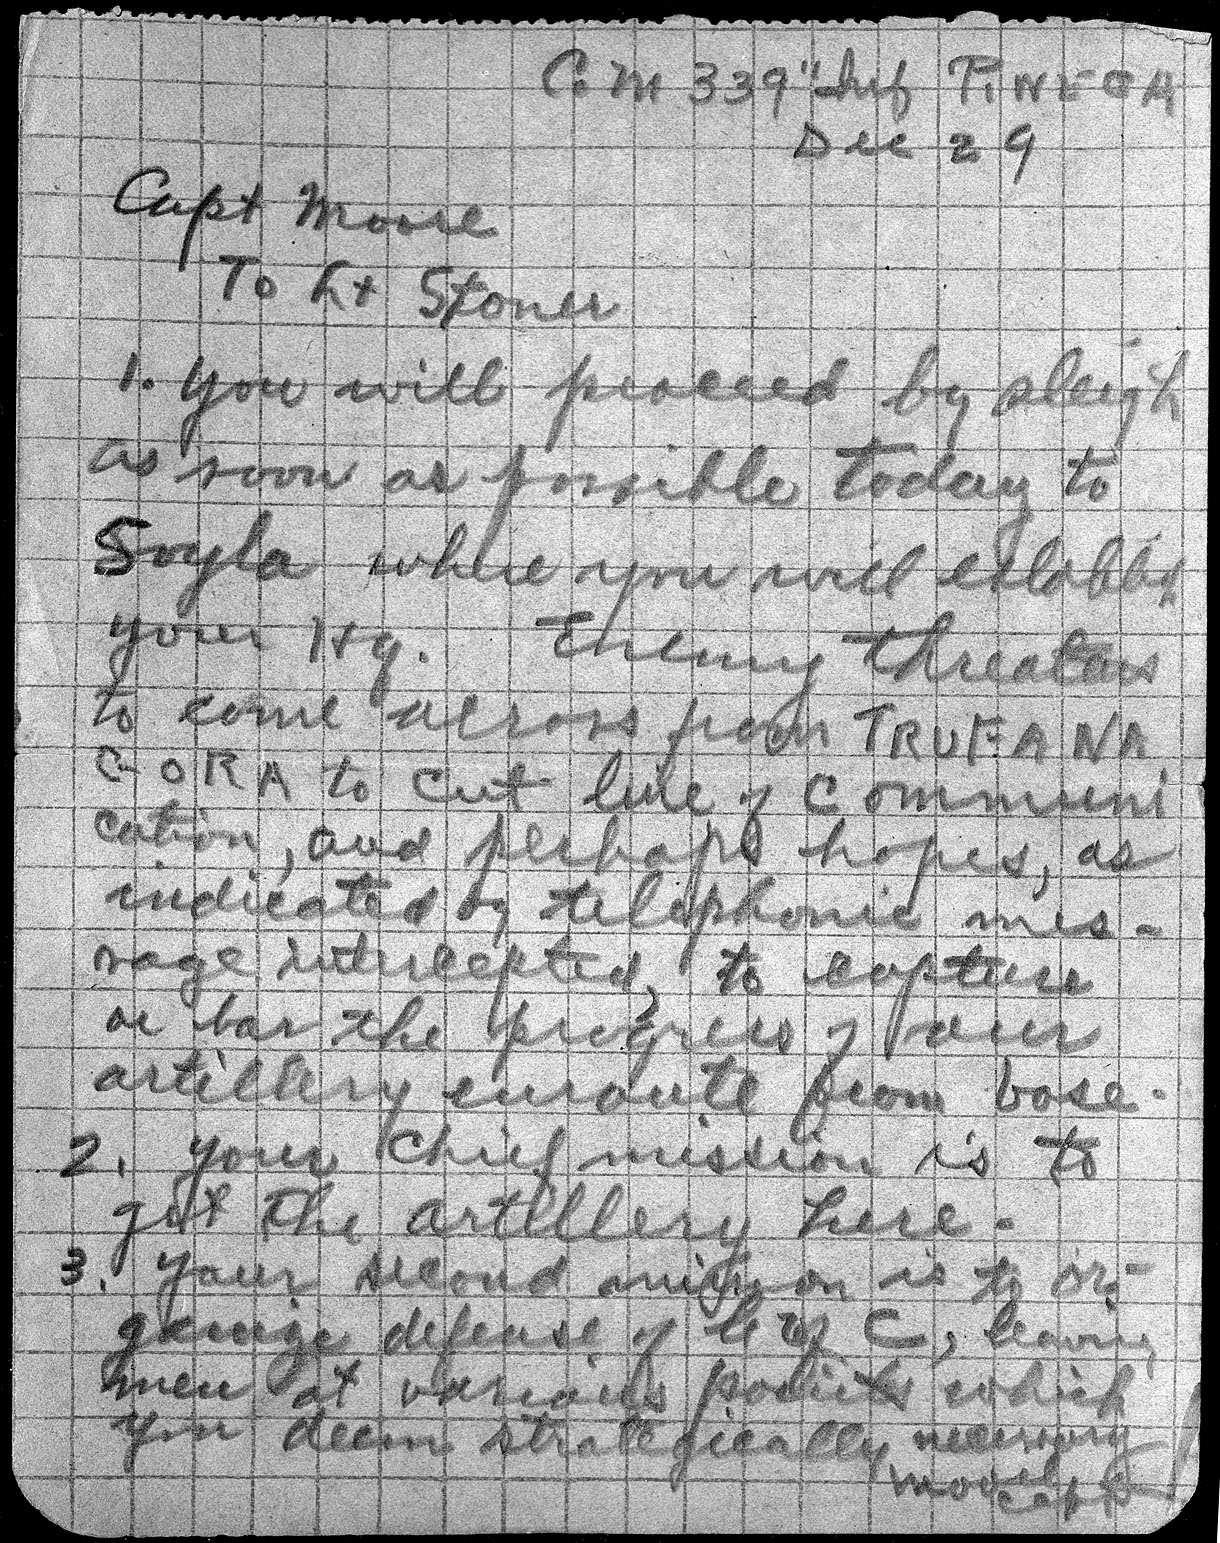 Co M 339" Inf PINEGA
Dec 29
Capt Moore
To Lt Stoner
1. You will proceed by sleigh
as soon as possible today to
Soyla where you will establish
your Hq. Enemy threatens
to come across from TRUFANA
GORA to cut line of communi
cation, and perhaps hopes, as
indicated by telephonic mes-
sage intercepted, to capture
or bar the progress of our
artillery enroute from base.
2. Your chief mission is to
get the artillery here.
3. Your second mission is to or-
ganize defense of L of C, leaving
men at various points which
you deem strategically necessary
Moore
Capt